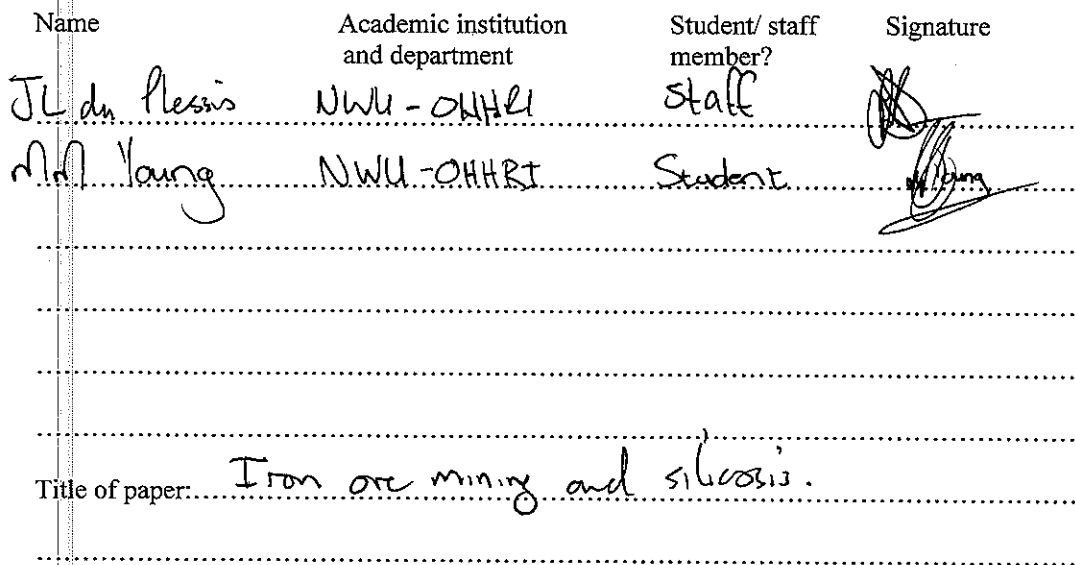 Name Academic institution and department Student/ staff member? Signature
JL du Plessis NWU - OHHRI Staff
MM Young NWU - OHHRI Student MYoung
Title of paper: Iron ore mining and silicosis.